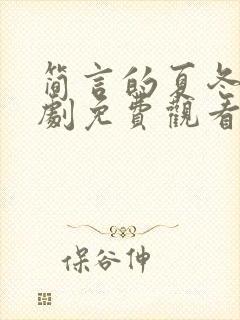 简言的夏冬
劇免費觀看
保谷伸